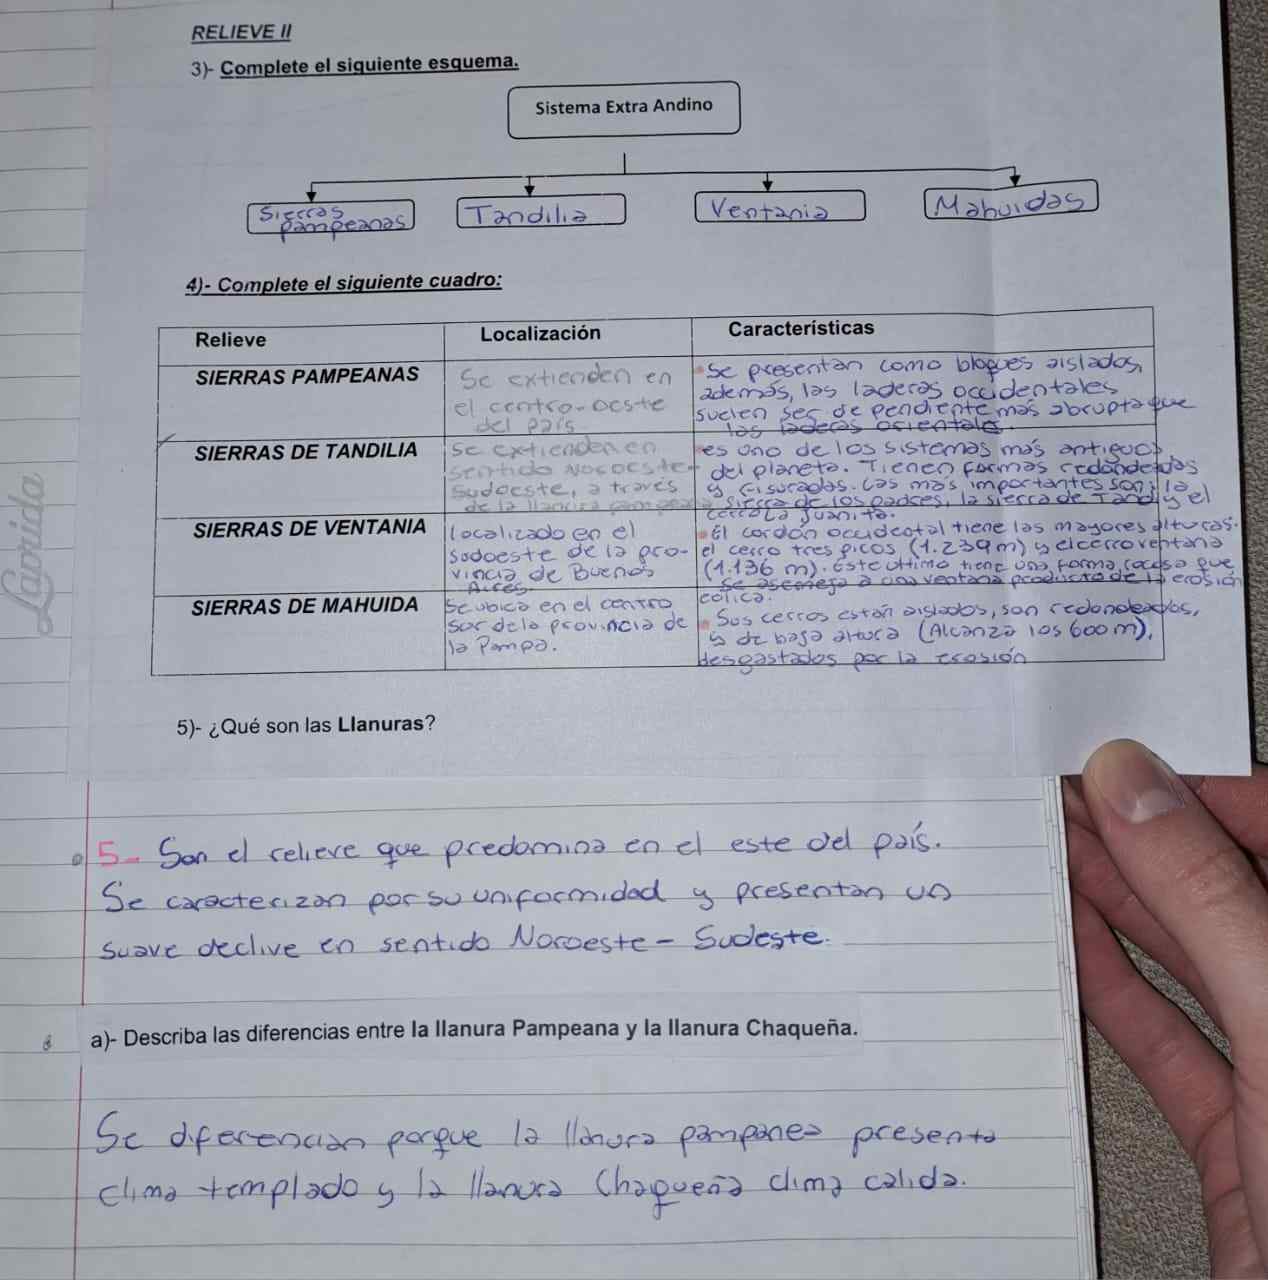 RELIEVE II
3)- Complete el siguiente esquema.
Sistema Extra Andino
Sierras
pampeanas
Tandilia
Ventania
Mahuidas
4)- Complete el siguiente cuadro:
Relieve
Localización
Características
SIERRAS PAMPEANAS
Se extienden en
el centro-oeste
del país.
Se presentan como bloques aislados,
además, las laderas occidentales
suelen ser de pendiente más abrupta que
las laderas orientales.
SIERRAS DE TANDILIA
se extienden en
sentido Noroeste-
Sudoeste, a través
de la llanura pampeana
es uno de los sistemas más antiguos
del planeta. Tienen formas redondeadas
y fisuradas. Las más importantes son: la
sierra de los padres, la sierra de Tandil y el
cerro La Juanita.
SIERRAS DE VENTANIA
Localizado en el
sudoeste de la pro-
vincia de Buenos
Aires.
El cordón occidental tiene las mayores alturas.
el cerro tres picos (1.239 m) y el cerro ventana
(1.136 m). Este último tiene una forma rocosa que
se asemeja a una ventana producto de la erosión
eólica.
SIERRAS DE MAHUIDA
Se ubica en el centro
sur de la provincia de
la Pampa.
Sus cerros están aislados, son redondeados,
y de baja altura (Alcanza los 600 m),
desgastados por la erosión
5)- ¿Qué son las Llanuras?
Laprida
5- Son el relieve que predomina en el este del país.
Se caracterizan por su uniformidad y presentan un
suave declive en sentido Noroeste - Sudeste.
a)- Describa las diferencias entre la llanura Pampeana y la llanura Chaqueña.
Se diferencian porque la llanura pampanea presenta
clima templado y la llanura Chaqueña clima calida.